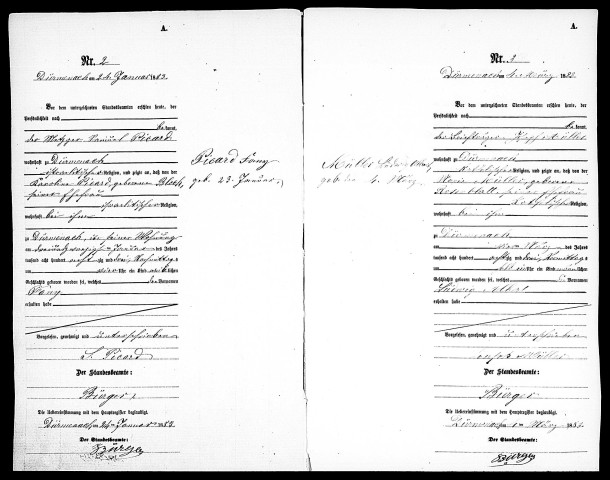 A.
Nr. 2
Dürmenach am 24. Januar 1883.
Vor dem unterzeichneten Standesbeamten erschien heute, der
Persönlichkeit nach
bekannt,
der Metzger Samuel Picard
wohnhaft zu Dürmenach
israelitischer Religion, und zeigte an, daß von der
Karoline Picard, geborenen Bloch,
seiner Ehefrau
israelitischer Religion,
wohnhaft bei ihm
zu Dürmenach, in seiner Wohnung
am dreiundzwanzigsten Januar des Jahres
tausend acht hundert achtzig und drei, Nachmittags
um vier Uhr ein Kind weiblichen
Geschlechts geboren worden sei, welches Vornamen
Fany
erhalten habe
Vorgelesen, genehmigt und unterschrieben
S. Picard
Der Standesbeamte:
Bürger.
Die Uebereinstimmung mit dem Hauptregister beglaubigt.
Dürmenach am 24. Januar 1883.
Der Standesbeamte:
Bürger
Picard Fany
geb. 23. Januar.
A.
Nr. 3
Dürmenach am März 1883.
Vor dem unterzeichneten Standesbeamten erschien heute, der
Persönlichkeit nach
bekannt,
der Müller
wohnhaft zu Dürmenach
katholischer Religion, und zeigte an, daß von der
Müller, geborenen
seiner Ehefrau
katholischer Religion,
wohnhaft bei ihm
zu Dürmenach
am März des Jahres
tausend acht hundert achtzig und drei,
um Uhr ein Kind männlichen
Geschlechts geboren worden sei, welches Vornamen
Ludwig Albert
erhalten habe
Vorgelesen, genehmigt und unterschrieben
Müller
Der Standesbeamte:
Bürger
Die Uebereinstimmung mit dem Hauptregister beglaubigt.
Dürmenach am März
Der Standesbeamte:
Bürger
Müller Ludwig Albert,
geboren März.